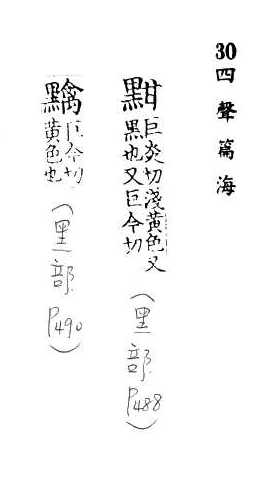 30四聲篇海
䵛巨炎切淺黃色又
黑也又巨今切
(黑部 P488)
黭巨今切
黃色也
(黑部 P490)